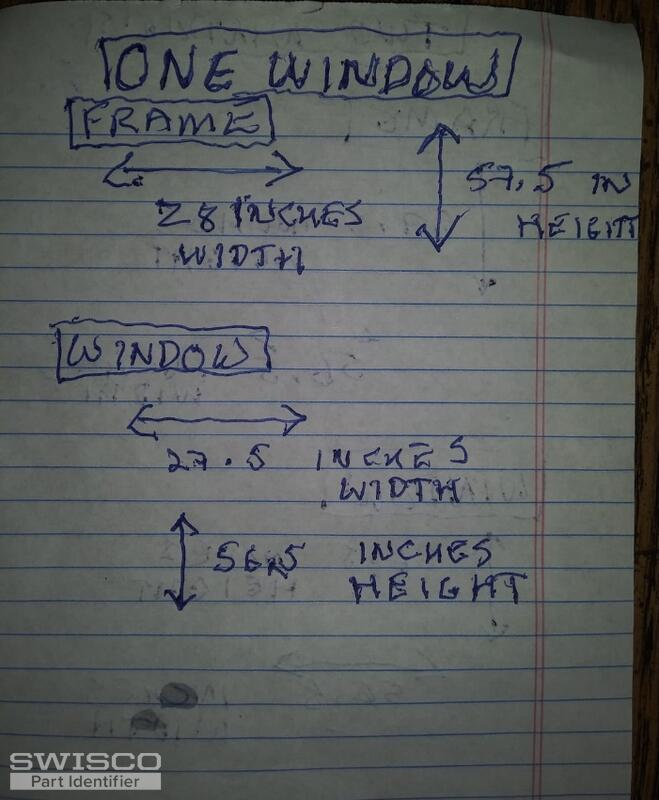 ONE WINDOW
FRAME
57.5 IN
28 INCHES
HEIGHT
WIDTH
WINDOW
27.5 INCHES
WIDTH
56.5 INCHES
HEIGHT
SWISCO
Part Identifier